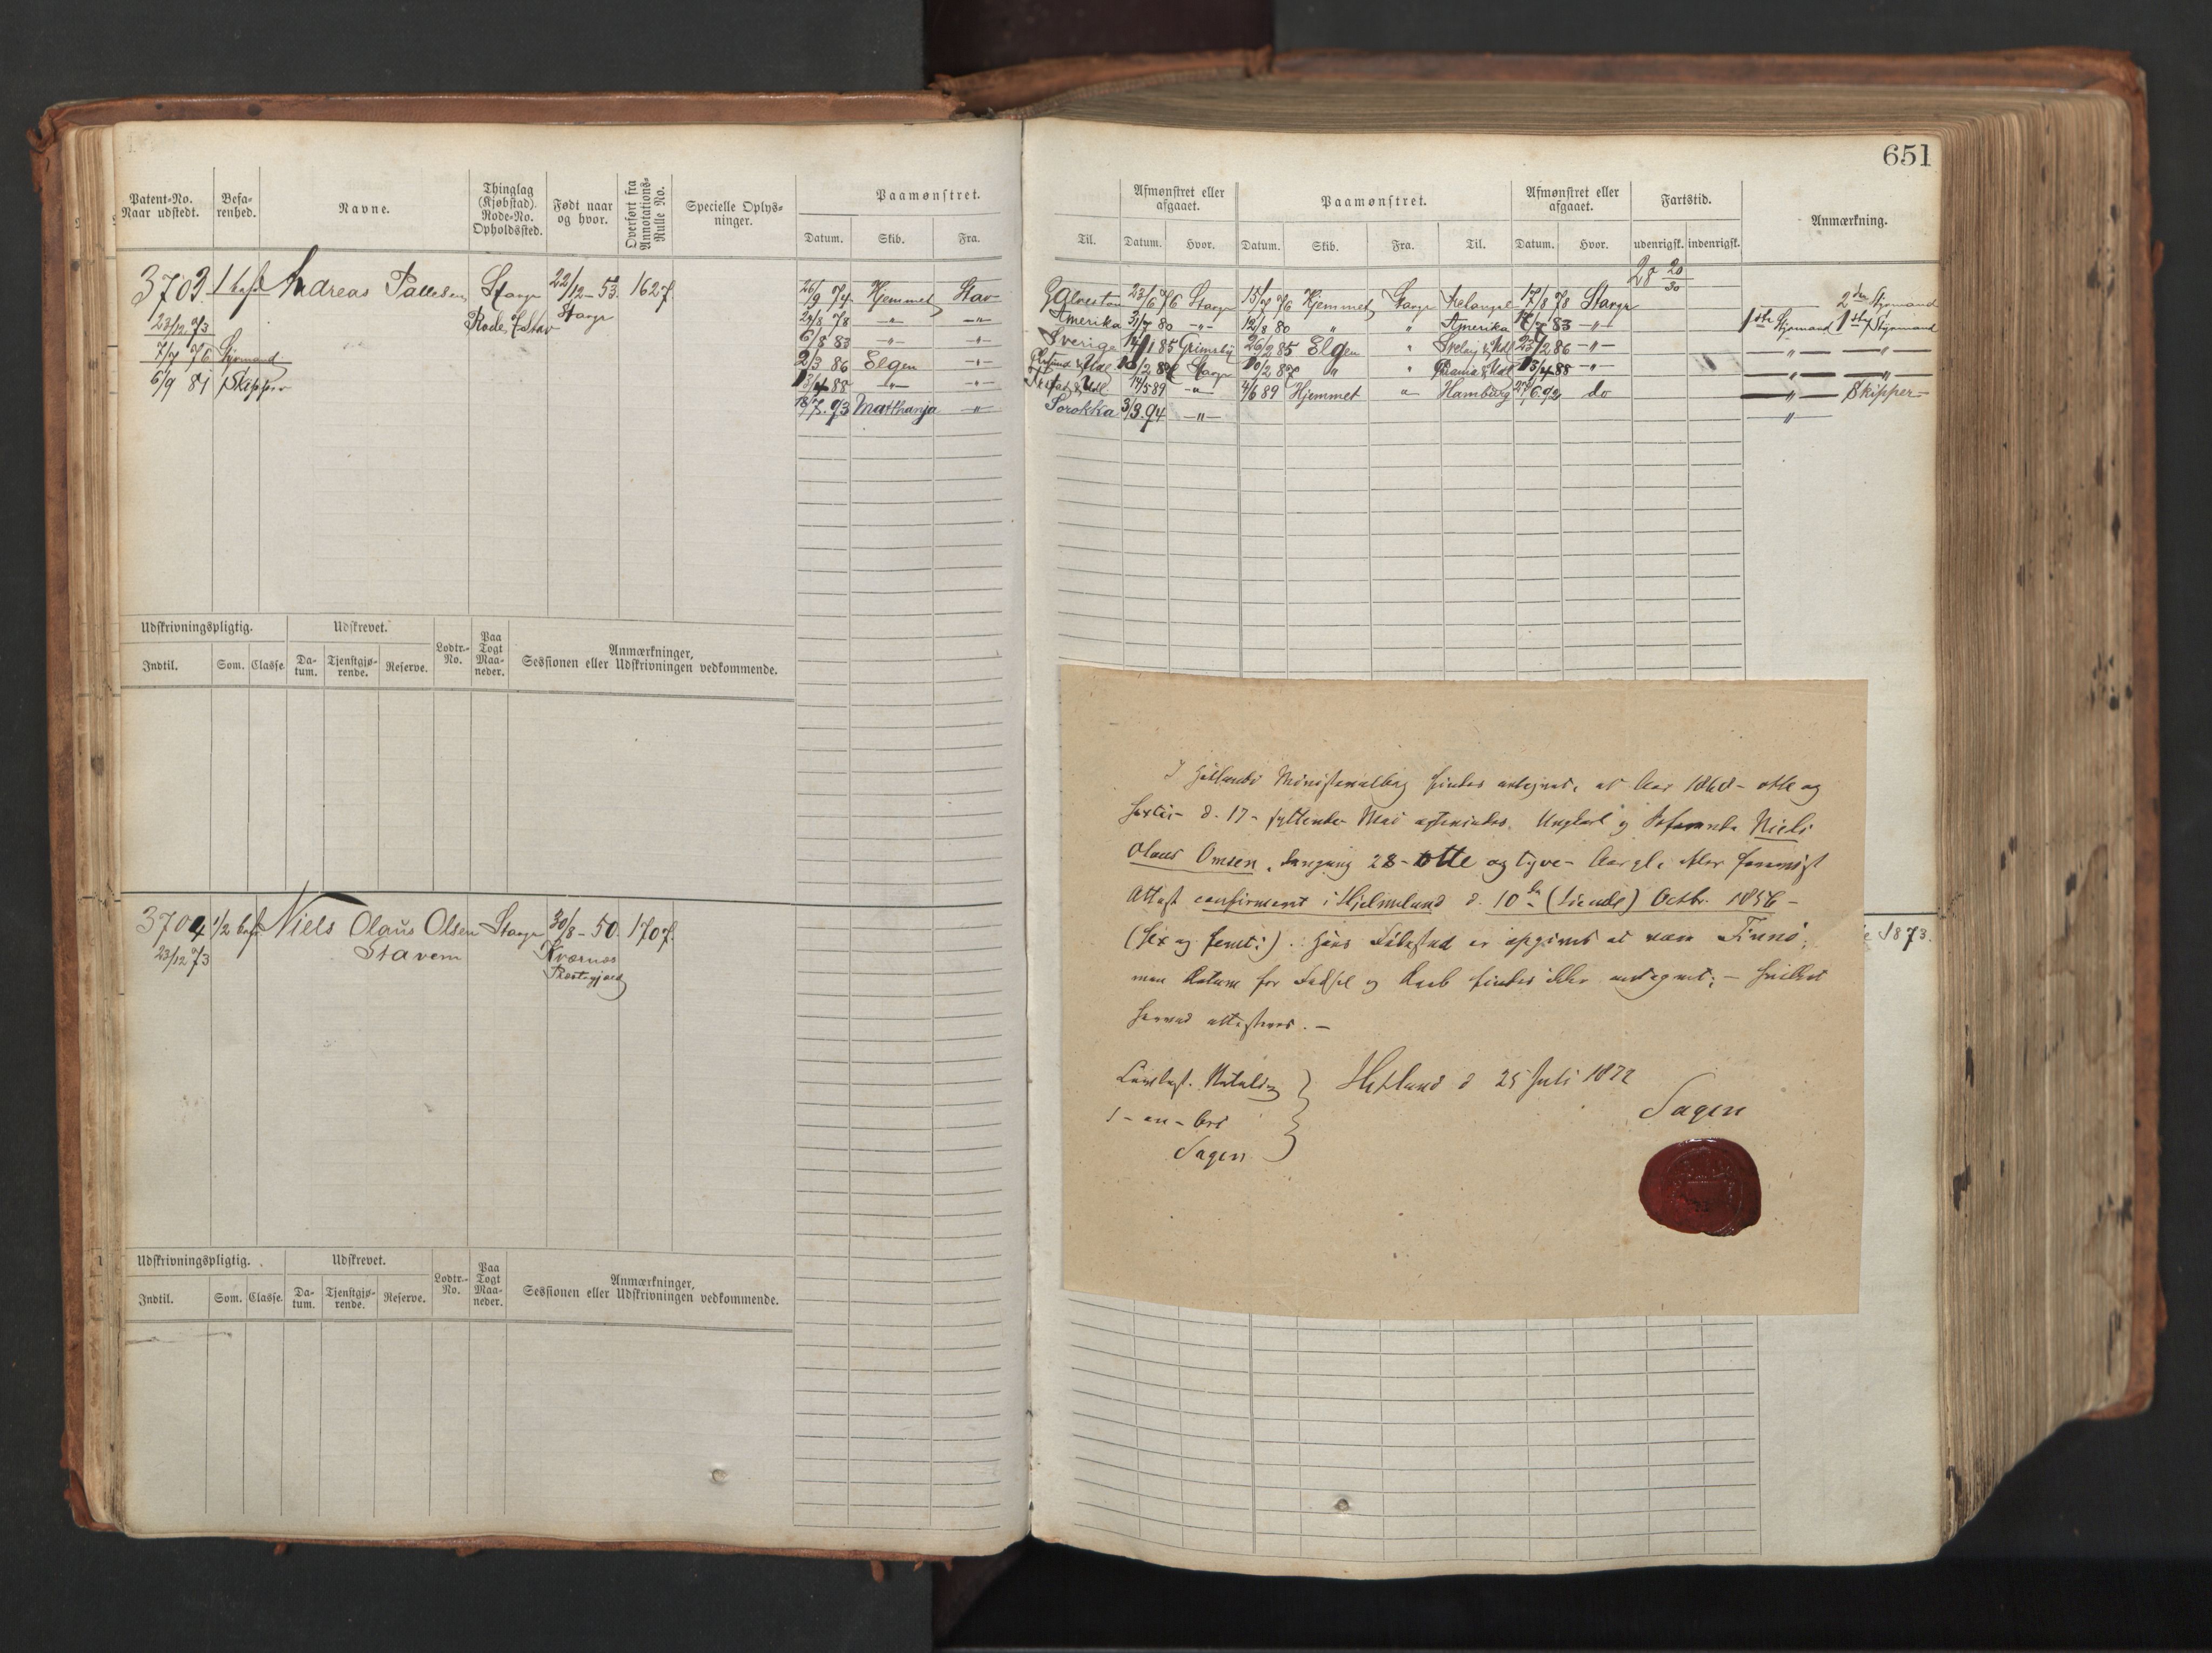 651
Patent-No. Naar udstedt. Befarenhed. Navne. Thinglag (Kjøbstad). Rode-No. Opholdssted. Født naar og hvor. Overført fra Annotations-Rulle No. Specielle Oplysninger. Paamønstret.
Datum. Skib. Fra.
Til. Afmønstret eller afgaaet. Datum. Hvor. Paamønstret. Datum. Skib. Fra. Til. Afmønstret eller afgaaet. Datum. Hvor. Fartstid. udenrigsk. indenrigsk. Anmærkning.
3703 1 bef Andreas Pallesen Stavgr 22/12-53. 1627.
23/12 73 Rode Stavgr
7/7 76 Styrmand
6/9 81 Skipper
26/9 74 Hjemmet Stav
29/8 78 -"- -"-
6/8 83 -"- -"-
2/3 86 Elgen -"-
13/4 88 -"- -"-
18/7.93 Matthanja -"-
28 20/30
Galveston 23/6 76 Stavgr 15/7 76 Hjemmet Stavgr Archangel 17/8 78 Stavgr 2den Styrmand
Amerika 31/7 80 -"- 12/8 80 " " Amerika 17/7 83 -"- 1ste Styrmand 1ste Styrmand
Sverige 14/1 85 Grimsby 26/2 85 Elgen " 23/2 86 -"- -"- -"-
Stavgr 10/2 87 " " 13/4 88 -"- -"- -"-
14/5 89 -"- 4/6 89 Hjemmet " Hamburg 27/6.92 do -"- Skipper
Sorokka 3/3.94 -"- "
Udskrivningspligtig. Udskrevet. Lodtr.-No. Paa Togt Maaneder. Anmærkninger, Sessionen eller Udskrivningen vedkommende.
Indtil. Som. Classe. Datum. Tjenstgjørende. Reserve.
3704 1/2 bef Niels Olaus Olsen Stavgr 30/8-50. 1707.
23/12 73 Stavem Kværnes
Præstegjæld
1873.
I Hetlands Ministerialbog findes antegnet, at Aar 1868 - otte og
sexti - d. 17 - syttende Mai Ungkarl og Niels
Olaus Omsen, 28 - otte og tyve - Aar gl, efter
Attest confirmeret i Hjelmeland d. 10de (tiende) Octbr. 1856 -
(sex og femti). Hans Fødested er opgivet at være Finnø;
men Datum for Fødsel og Daab findes ikke antegnet; - hvilket
herved attesteres. -
Hetland d 25 Juli 1872
Sagen
1 - en - Ort
Sagen
Udskrivningspligtig. Udskrevet. Lodtr.-No. Paa Togt Maaneder. Anmærkninger, Sessionen eller Udskrivningen vedkommende.
Indtil. Som. Classe. Datum. Tjenstgjørende. Reserve.